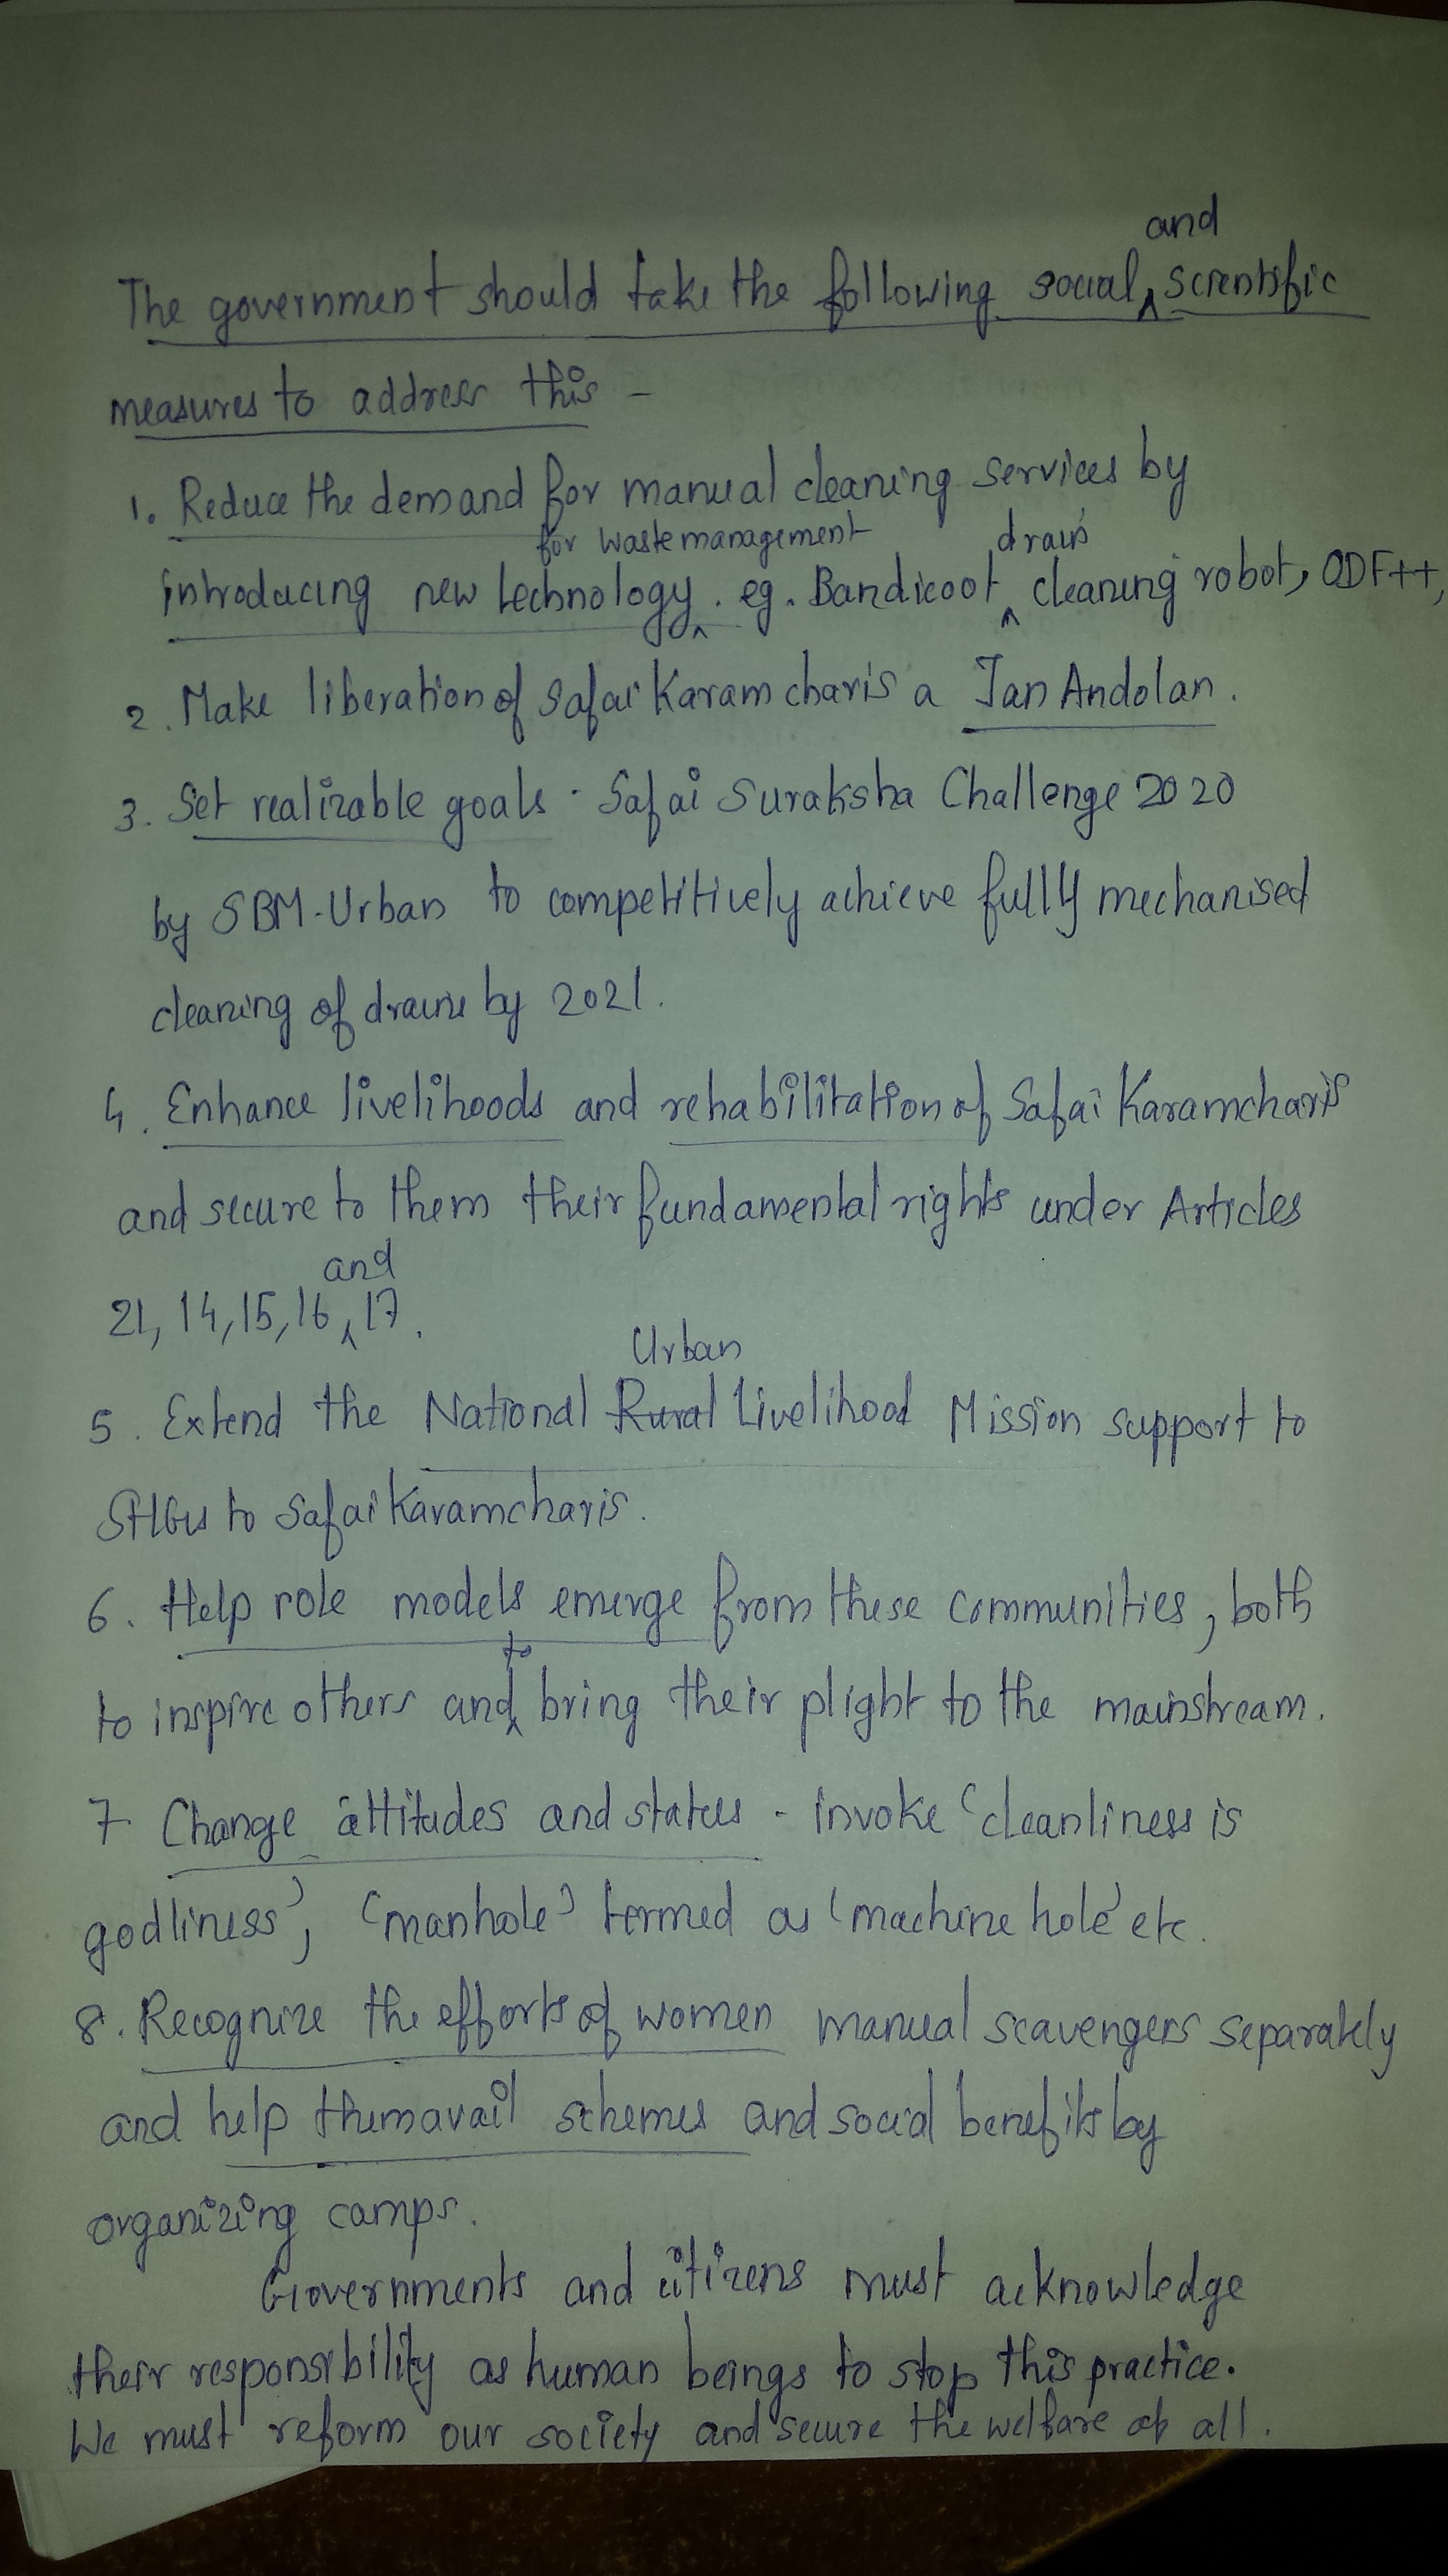 The government should take the following social and scientific
measures to address this -
1. Reduce the demand for manual cleaning services by
introducing new technology for waste management. eg. Bandicoot drain cleaning robot, ODF++,
2. Make liberation of Safai Karamcharis a Jan Andolan.
3. Set realizable goals - Safai Suraksha Challenge 2020
by SBM-Urban to competitively achieve fully mechanised
cleaning of drains by 2021.
4. Enhance livelihoods and rehabilitation of Safai Karamcharis
and secure to them their fundamental rights under Articles
21, 14, 15, 16 and 17.
5. Extend the National Rural Urban Livelihood Mission support to
SHGs to Safai Karamcharis.
6. Help role models emerge from these communities, both
to inspire others and to bring their plight to the mainstream.
7 Change attitudes and status - invoke 'cleanliness is
godliness', 'manhole' termed as 'machine hole' etc.
8. Recognize the efforts of women manual scavengers separately
and help them avail schemes and social benefits by
organizing camps.
Governments and citizens must acknowledge
their responsibility as human beings to stop this practice.
We must reform our society and secure the welfare of all.